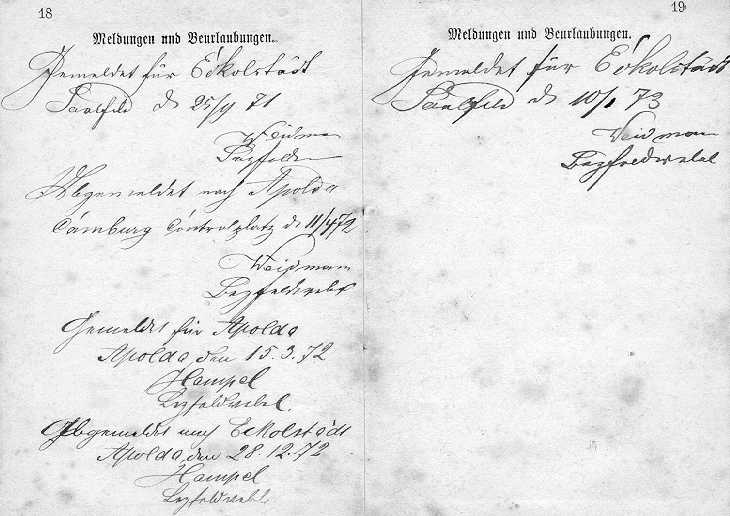 18
Meldungen und Beurlaubungen.
Gemeldet für Eckolstädt
Saalfeld d 25/9 71
Weidman
Abgemeldet nach Apolda
Camburg Controlplatz d. 11/4 72
Weidmann
Bezfeldwebel
Gemeldet für Apolda
Apolda den 15.3.72
Hampel
Bezfeldwebel.
Abgemeldet nach Eckolstädt
Apolda, den 28.12.72
Hampel
Bezfeldwebl.
19
Meldungen und Beurlaubungen.
Gemeldet für Eckolstädt
Saalfeld d 10/1 73
Weidmann
Bezfeldwebel